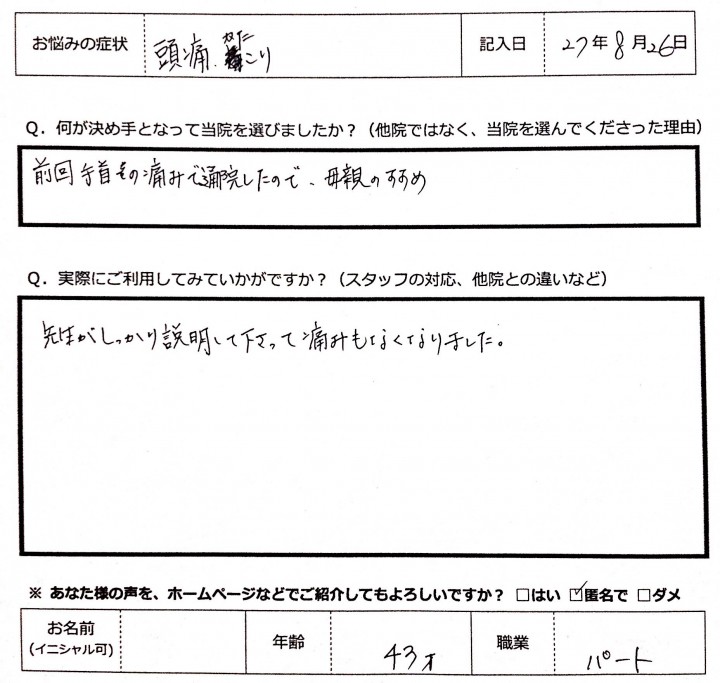 お悩みの症状 頭痛、かたこり 記入日 27年8月26日
Q．何が決め手となって当院を選びましたか？（他院ではなく、当院を選んでくださった理由）
前回手首の痛みで通院したので、母親のすすめ
Q．実際にご利用してみていかがですか？（スタッフの対応、他院との違いなど）
先生がしっかり説明して下さって痛みもなくなりました。
※ あなた様の声を、ホームページなどでご紹介してもよろしいですか？ □はい ☑匿名で □ダメ
お名前 年齢 43才 職業 パート
(イニシャル可)